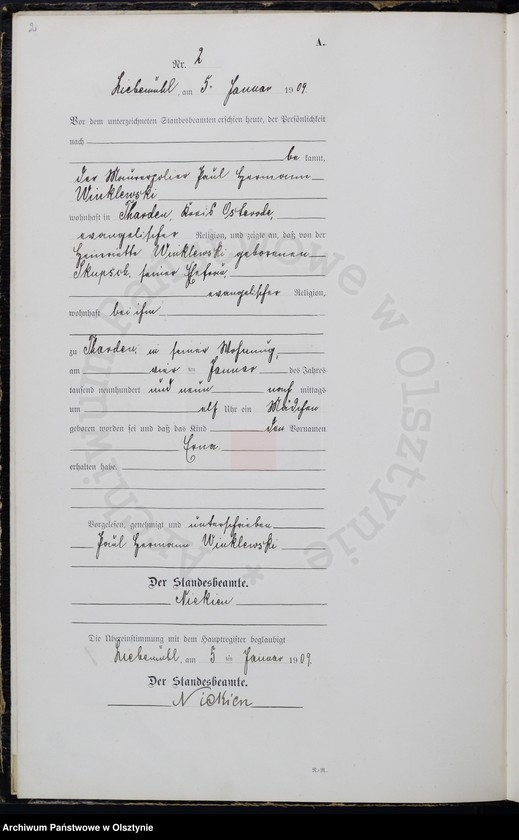 2
A.
Nr. 2
Liebemühl, am 5. Januar 1909.
Vor dem unterzeichneten Standesbeamten erschien heute, der Persönlichkeit
nach
be kannt,
der Maurerpolier Paul Hermann
Winklewski
wohnhaft in Tharden, Kreis Osterode,
evangelischer Religion, und zeigte an, daß von der
Henriette Winklewski geborenen
seiner Ehefrau,
evangelischer Religion,
wohnhaft bei ihm
zu Tharden, in seiner Wohnung,
am vier ten Januar des Jahres
tausend neunhundert und neun nach mittags
um elf Uhr ein Mädchen
geboren worden sei und daß das Kind den Vornamen
Erna
erhalten habe.
Vorgelesen, genehmigt und unterschrieben
Paul Hermann Winklewski
Der Standesbeamte.
Nickien
Die Übereinstimmung mit dem Hauptregister beglaubigt
Liebemühl, am 5 ten Januar 1909.
Der Standesbeamte.
Nickien
Archiwum Państwowe w Olsztynie
Archiwum Państwowe w Olsztynie